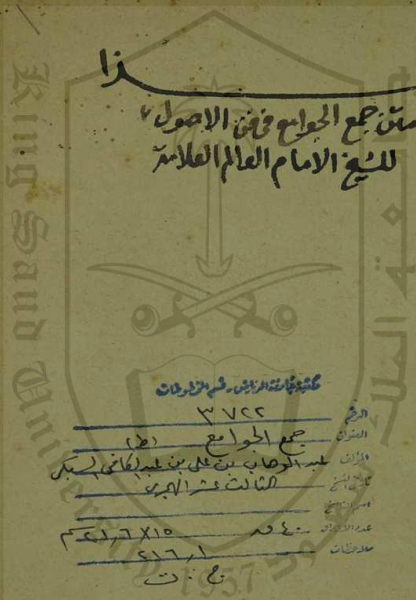 هذا
متن جمع الجوامع في فن الاصول
للشيخ الامام العالم العلامة
مكتبة جامعة الرياض - قسم المخطوطات
الرقم ٣٧٢٢
العنوان جمع الجوامع
المؤلف عبد الوهاب بن علي بن عبد الكافي السبكي
تاريخ النسخ الثالث عشر الهجري
اسم الناسخ
عدد الأوراق ٤٠ ق ١٥×٢١٫٦ سم
ملاحظات ٢١٦٫١
King Saud University
1957